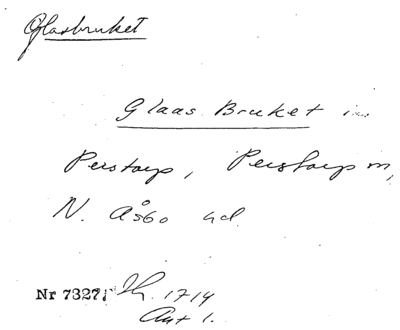 Glasbruket
Glaas Bruket in
Perstorp, Perstorp sn,
N. Åsbo hd.
Nr 7327. Jb. 1714
Ant 1.